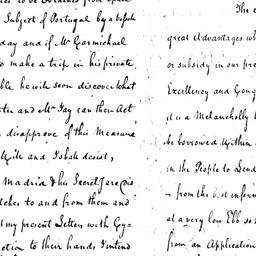 Subject of Portugal by a
day and if Mr Carmichael
make a trip in his private
he will soon discover what
and Mr Jay can then Act
disapprove of this Measure
and I shall desist,
Madrid & his Secret
to and from them and
my present Letters with
to their hands I intend
The
great Advantages
or subsidy in our
Excellency and
it is a Melancholy
be borrowed within
in the People to Lend
from the best
at a very low Ebb so
from an Application